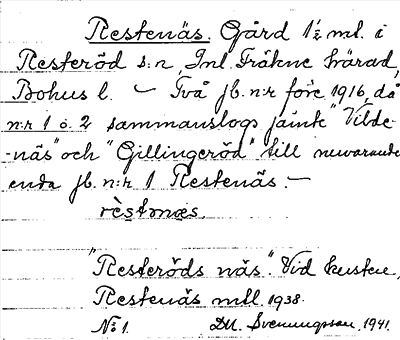 Restenäs. Gård 1½ ml. i
Resteröd s:n, Inl. Fräkne härad,
Bohus l. – Två jb. n:r före 1916, då
n:r 1 o. 2 sammanslogs jämte "Vilde-
-näs" och "Gillingeröd" till nuvarande
enda jb. n:r 1 Restenäs. –
rèstənæs.
"Resteröds näs". Vid kusten,
Restenäs mtl. 1938.
No 1. DM. Svenungsson, 1941.